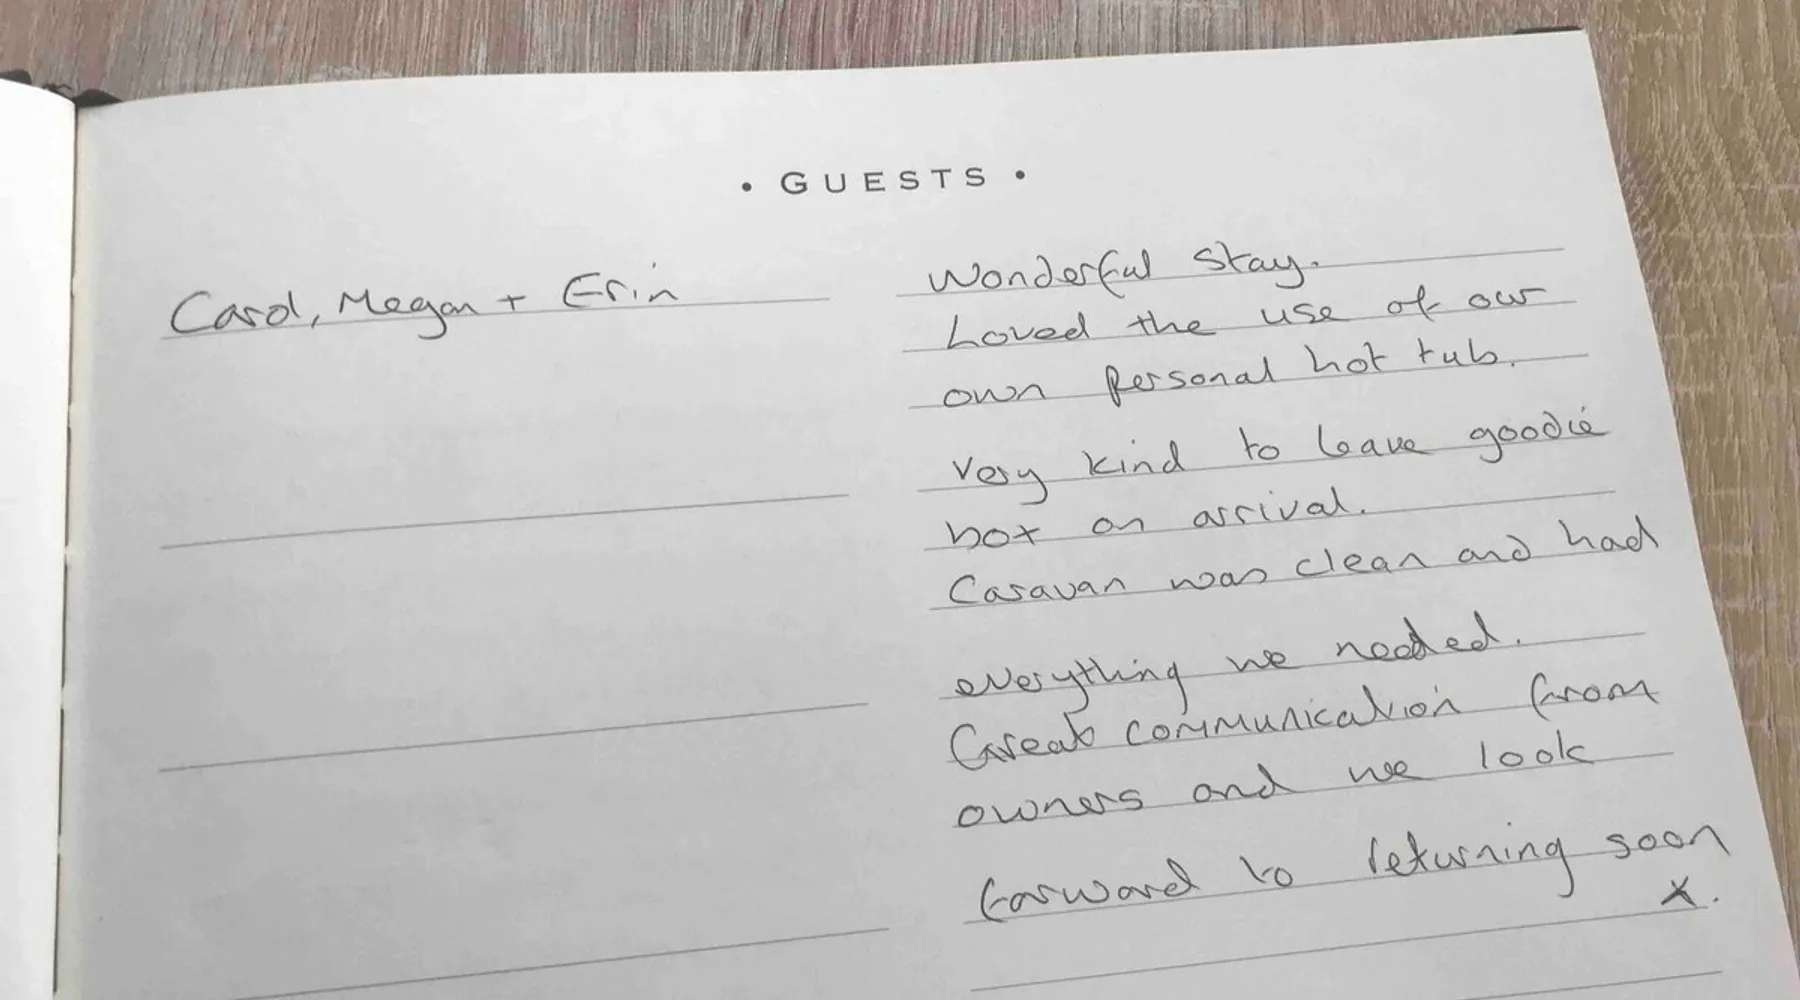 • GUESTS •
Carol, Megan + Erin
Wonderful stay.
Loved the use of our
own personal hot tub.
Very kind to leave goodie
box on arrival.
Caravan was clean and had
everything we needed.
Great communication from
owners and we look
forward to returning soon
x.